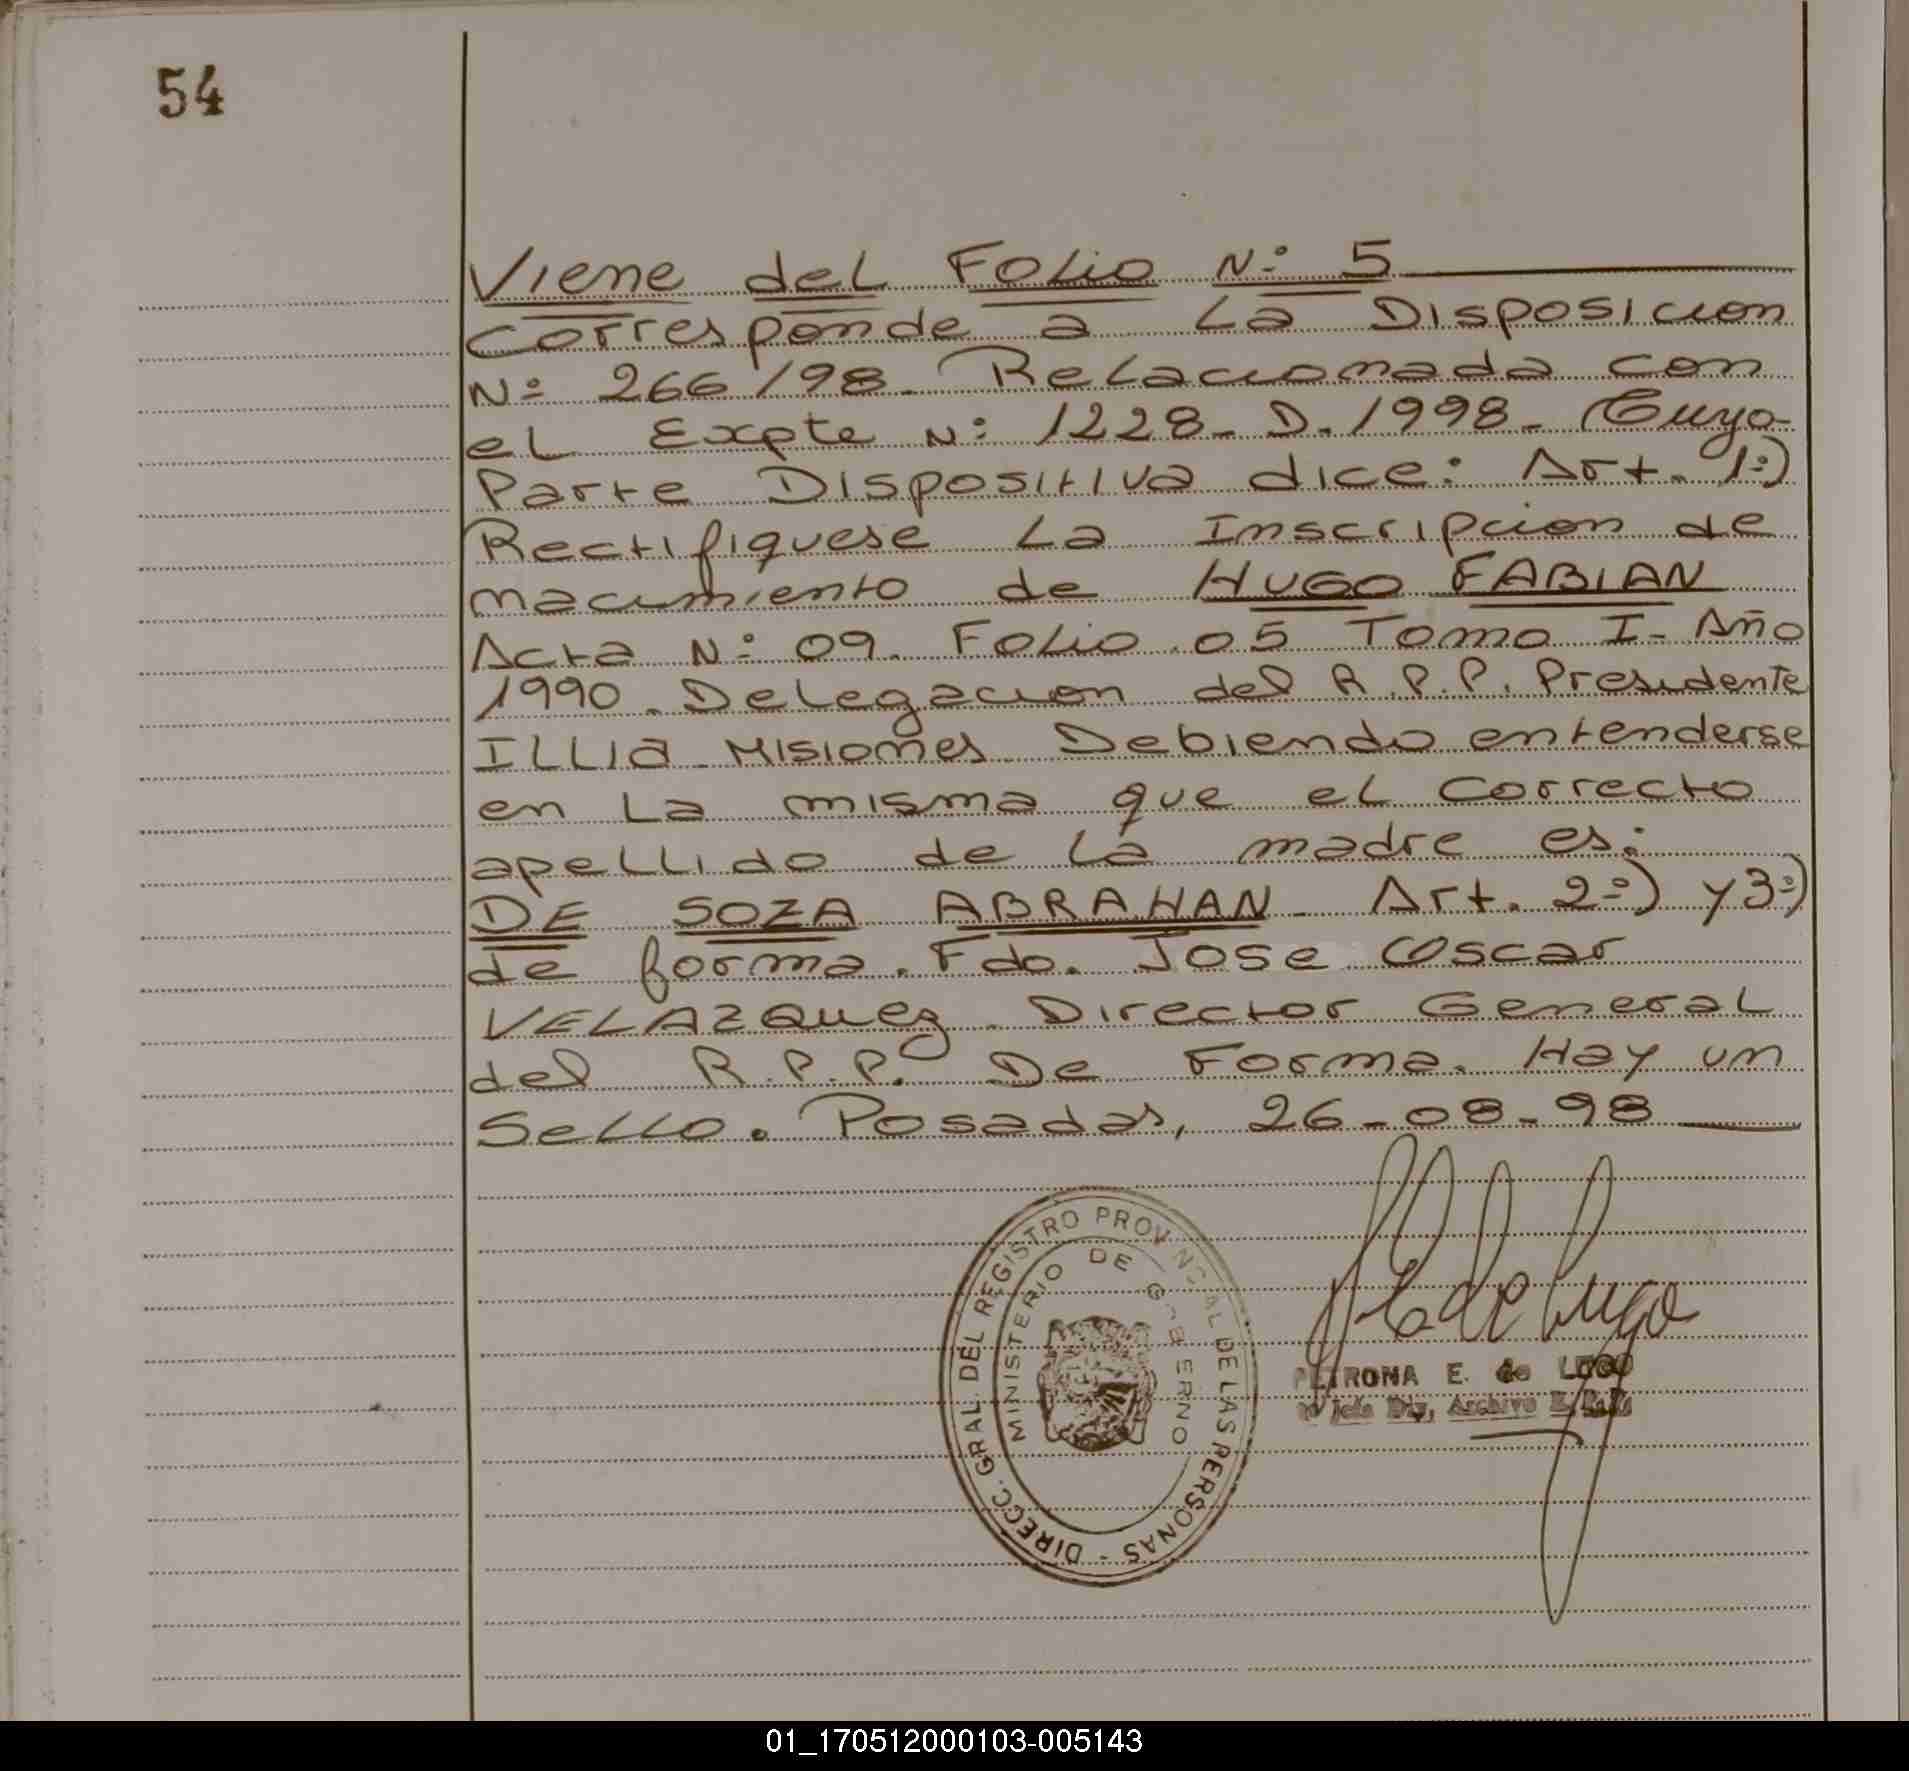 54
Viene del Folio Nº 5
Corresponde a La Disposicion
Nº 266/98. Relacionada con
el Expte Nº 1228-D-1998- Cuyo-
Parte Dispositiva dice: Art. 1º)
Rectifiquese La Inscripcion de
nacimiento de HUGO FABIAN
Acta Nº 09. Folio 05 Tomo I- Año
1990. Delegacion del R.P.P. Presidente
ILLIA Misiones Debiendo entenderse
en La misma que el correcto
apellido de La madre es:
DE SOZA ABRAHAN- Art. 2º) y 3º)
de forma. Fdo. Jose Oscar
VELAZquez. Director General
del R.P.P. De Forma. Hay un
Sello. Posadas, 26-08-98
DIRECC. GRAL. DEL REGISTRO PROVINCIAL DE LAS PERSONAS -
MINISTERIO DE GOBIERNO
PETRONA E. de LUGO
Jefe Div. Archivo R.P.P.
01_170512000103-005143